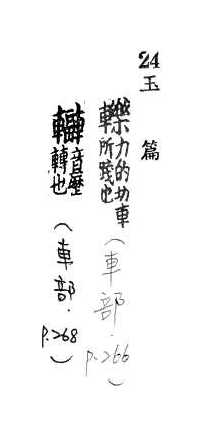 24
玉篇
轢力的切車所踐也（車部．p.266）
音歷轉也（車部．p.268）